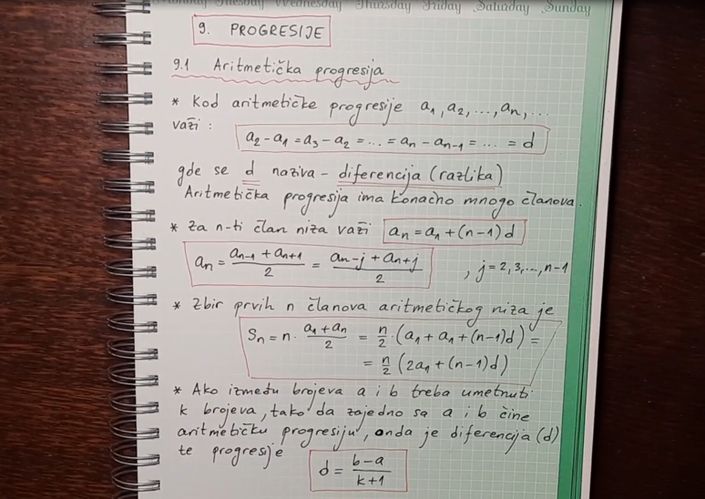 Monday Tuesday Wednesday Thursday Friday Saturday Sunday
9. PROGRESIJE
9.1 Aritmetička progresija
* Kod aritmetičke progresije a₁, a₂, ..., aₙ, ...
važi:
a₂ - a₁ = a₃ - a₂ = ... = aₙ - aₙ₋₁ = ... = d
gde se d naziva - diferencija (razlika)
Aritmetička progresija ima konačno mnogo članova.
* Za n-ti član niza važi aₙ = a₁ + (n-1)d
aₙ = (aₙ₋₁ + aₙ₊₁)/2 = (aₙ₋ⱼ + aₙ₊ⱼ)/2 , j = 2, 3, ..., n-1
* Zbir prvih n članova aritmetičkog niza je
Sₙ = n · (a₁ + aₙ)/2 = n/2 · (a₁ + a₁ + (n-1)d) =
= n/2 (2a₁ + (n-1)d)
* Ako između brojeva a i b treba umetnuti
k brojeva, tako da zajedno sa a i b čine
aritmetičku progresiju, onda je diferencija (d)
te progresije
d = (b-a)/(k+1)